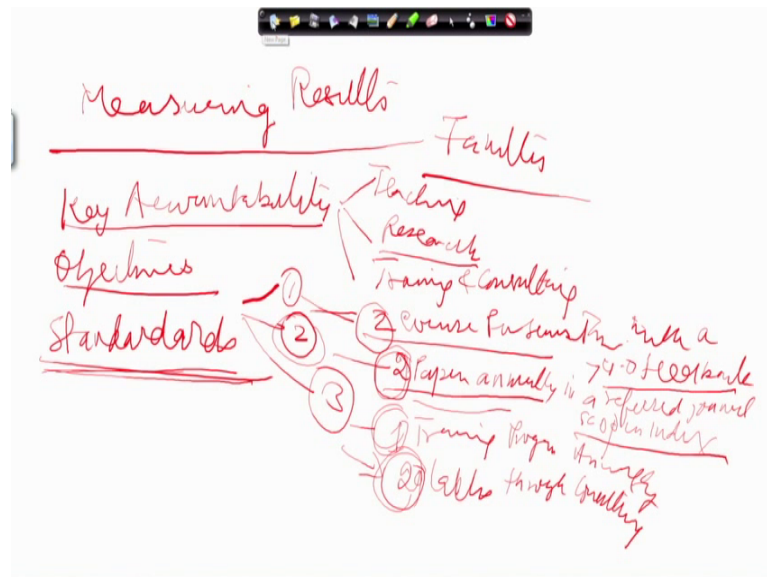 New Page
Measuring Results
Faculties
Key Accountability
Teaching
Research
Training & Consulting
Objectives
Standardards
1
2
3
2 Course with a
>4.0 feedback
2 Papers annually in a refereed journal
scopus Index
1 Training Program Annually
20 lakhs through Consulting